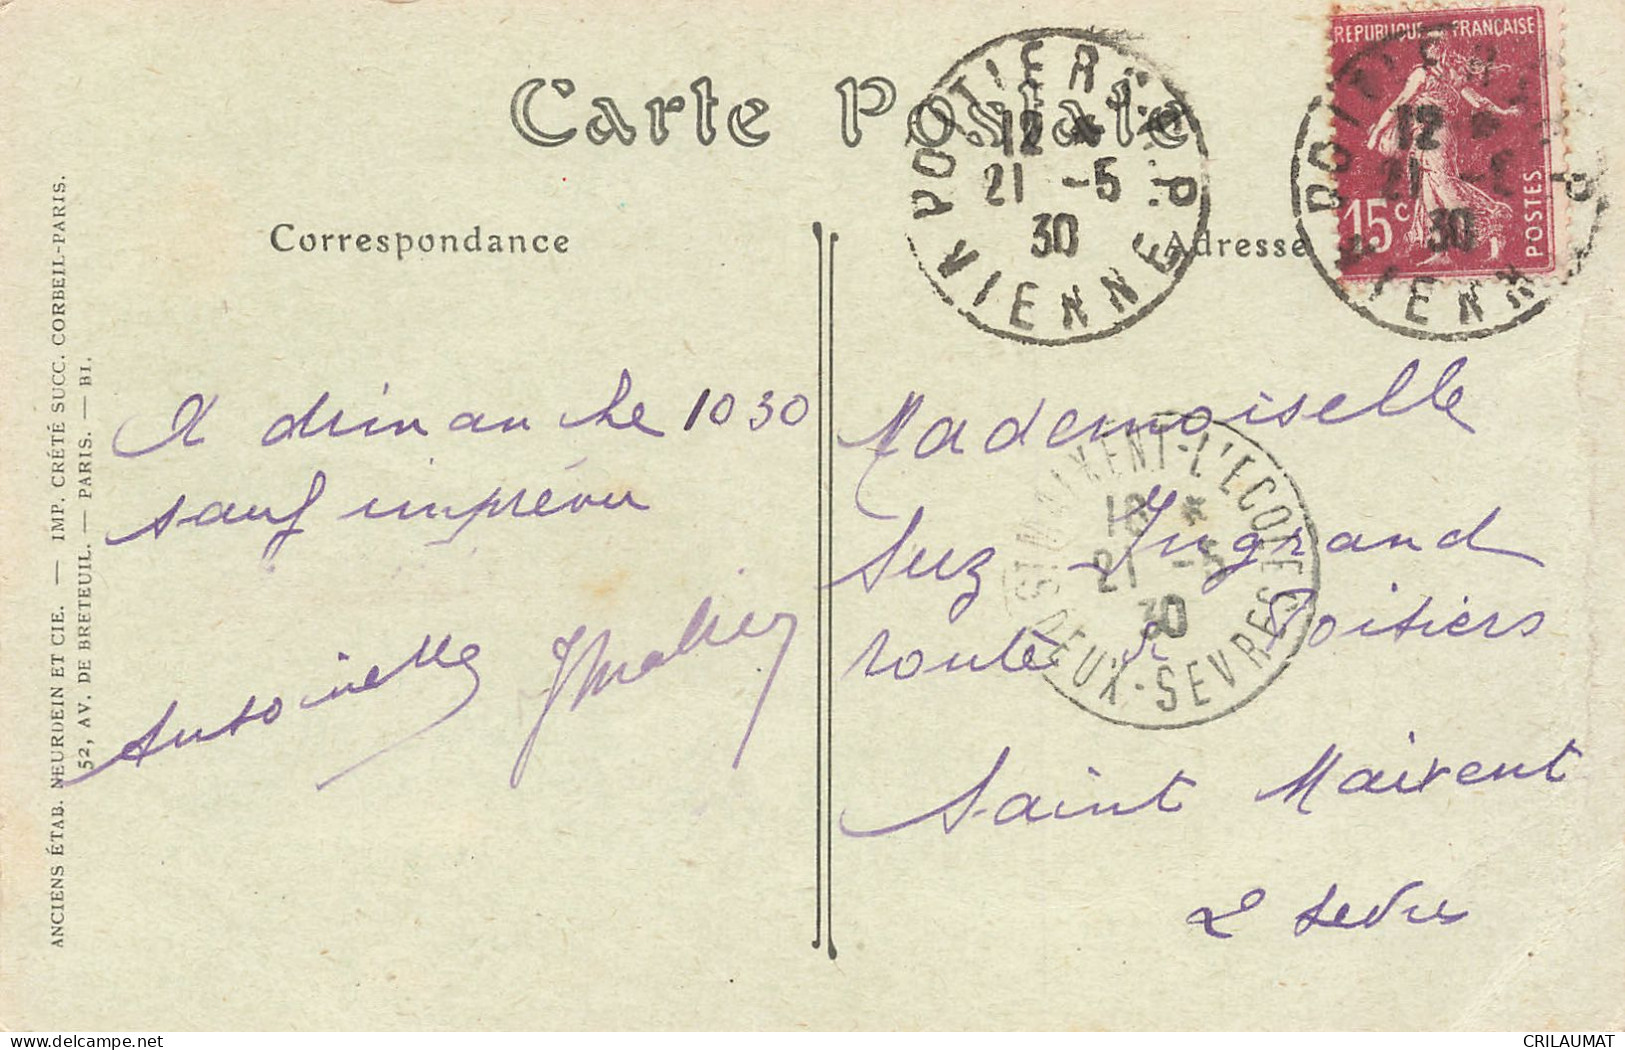 Carte Postale
Correspondance
Adresse
REPUBLIQUE FRANÇAISE
15c
POSTES
POITIERS R.P.
12 *
21 -5
30
VIENNE
POITIERS R.P.
12 *
21 -5
30
VIENNE
A dimanche 1030
sauf imprévu
Antoinette
Mademoiselle
Suz Ingrand
route de Poitiers
Saint Maixent
2 Sèvres
ST MAIXENT-L'ECOLE
18 *
21 -5
30
DEUX-SEVRES
ANCIENS ÉTAB. NEURDEIN ET CIE. — IMP. CRÉTÉ SUCC. CORBEIL-PARIS.
52, AV. DE BRETEUIL. — PARIS. — BI.
CRILAUMAT